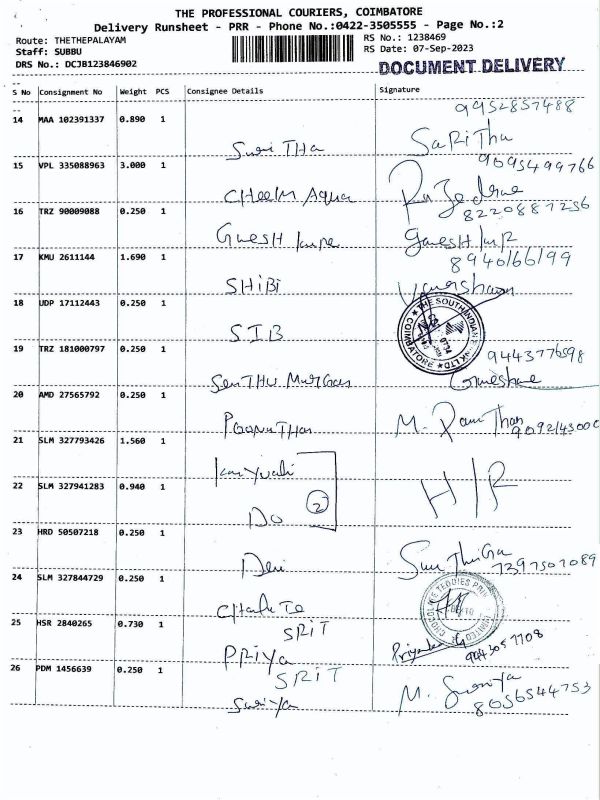 THE PROFESSIONAL COURIERS, COIMBATORE
Delivery Runsheet - PRR - Phone No.:0422-3505555 - Page No.:2
Route: THETHEPALAYAM
Staff: SUBBU
DRS No.: DCJB123846902
RS No.: 1238469
RS Date: 07-Sep-2023
DOCUMENT DELIVERY
S No Consignment No Weight PCS Consignee Details Signature
9952857488
14 MAA 102391337 0.890 1
SaRiTha
15 VPL 335088963 3.000 1 9095499766
CHeelm Aqua
16 TRZ 90009088 0.250 1 8220887256
17 KMU 2611144 1.690 1 8940166199
SHiBi
18 UDP 17112443 0.250 1
THE SOUTH INDIAN BANK LTD
COIMBATORE
S.I.B
19 TRZ 181000797 0.250 1 9443776598
20 AMD 27565792 0.250 1
21 SLM 327793426 1.560 1
22 SLM 327941283 0.940 1 H/R
Do 2
23 HRD 50507218 0.250 1
Devi 7397507089
24 SLM 327844729 0.250 1
25 HSR 2840265 0.730 1 SRIT
PRiYa
26 PDM 1456639 0.250 1 SRIT
M. Suriya
Suriya 8056544753